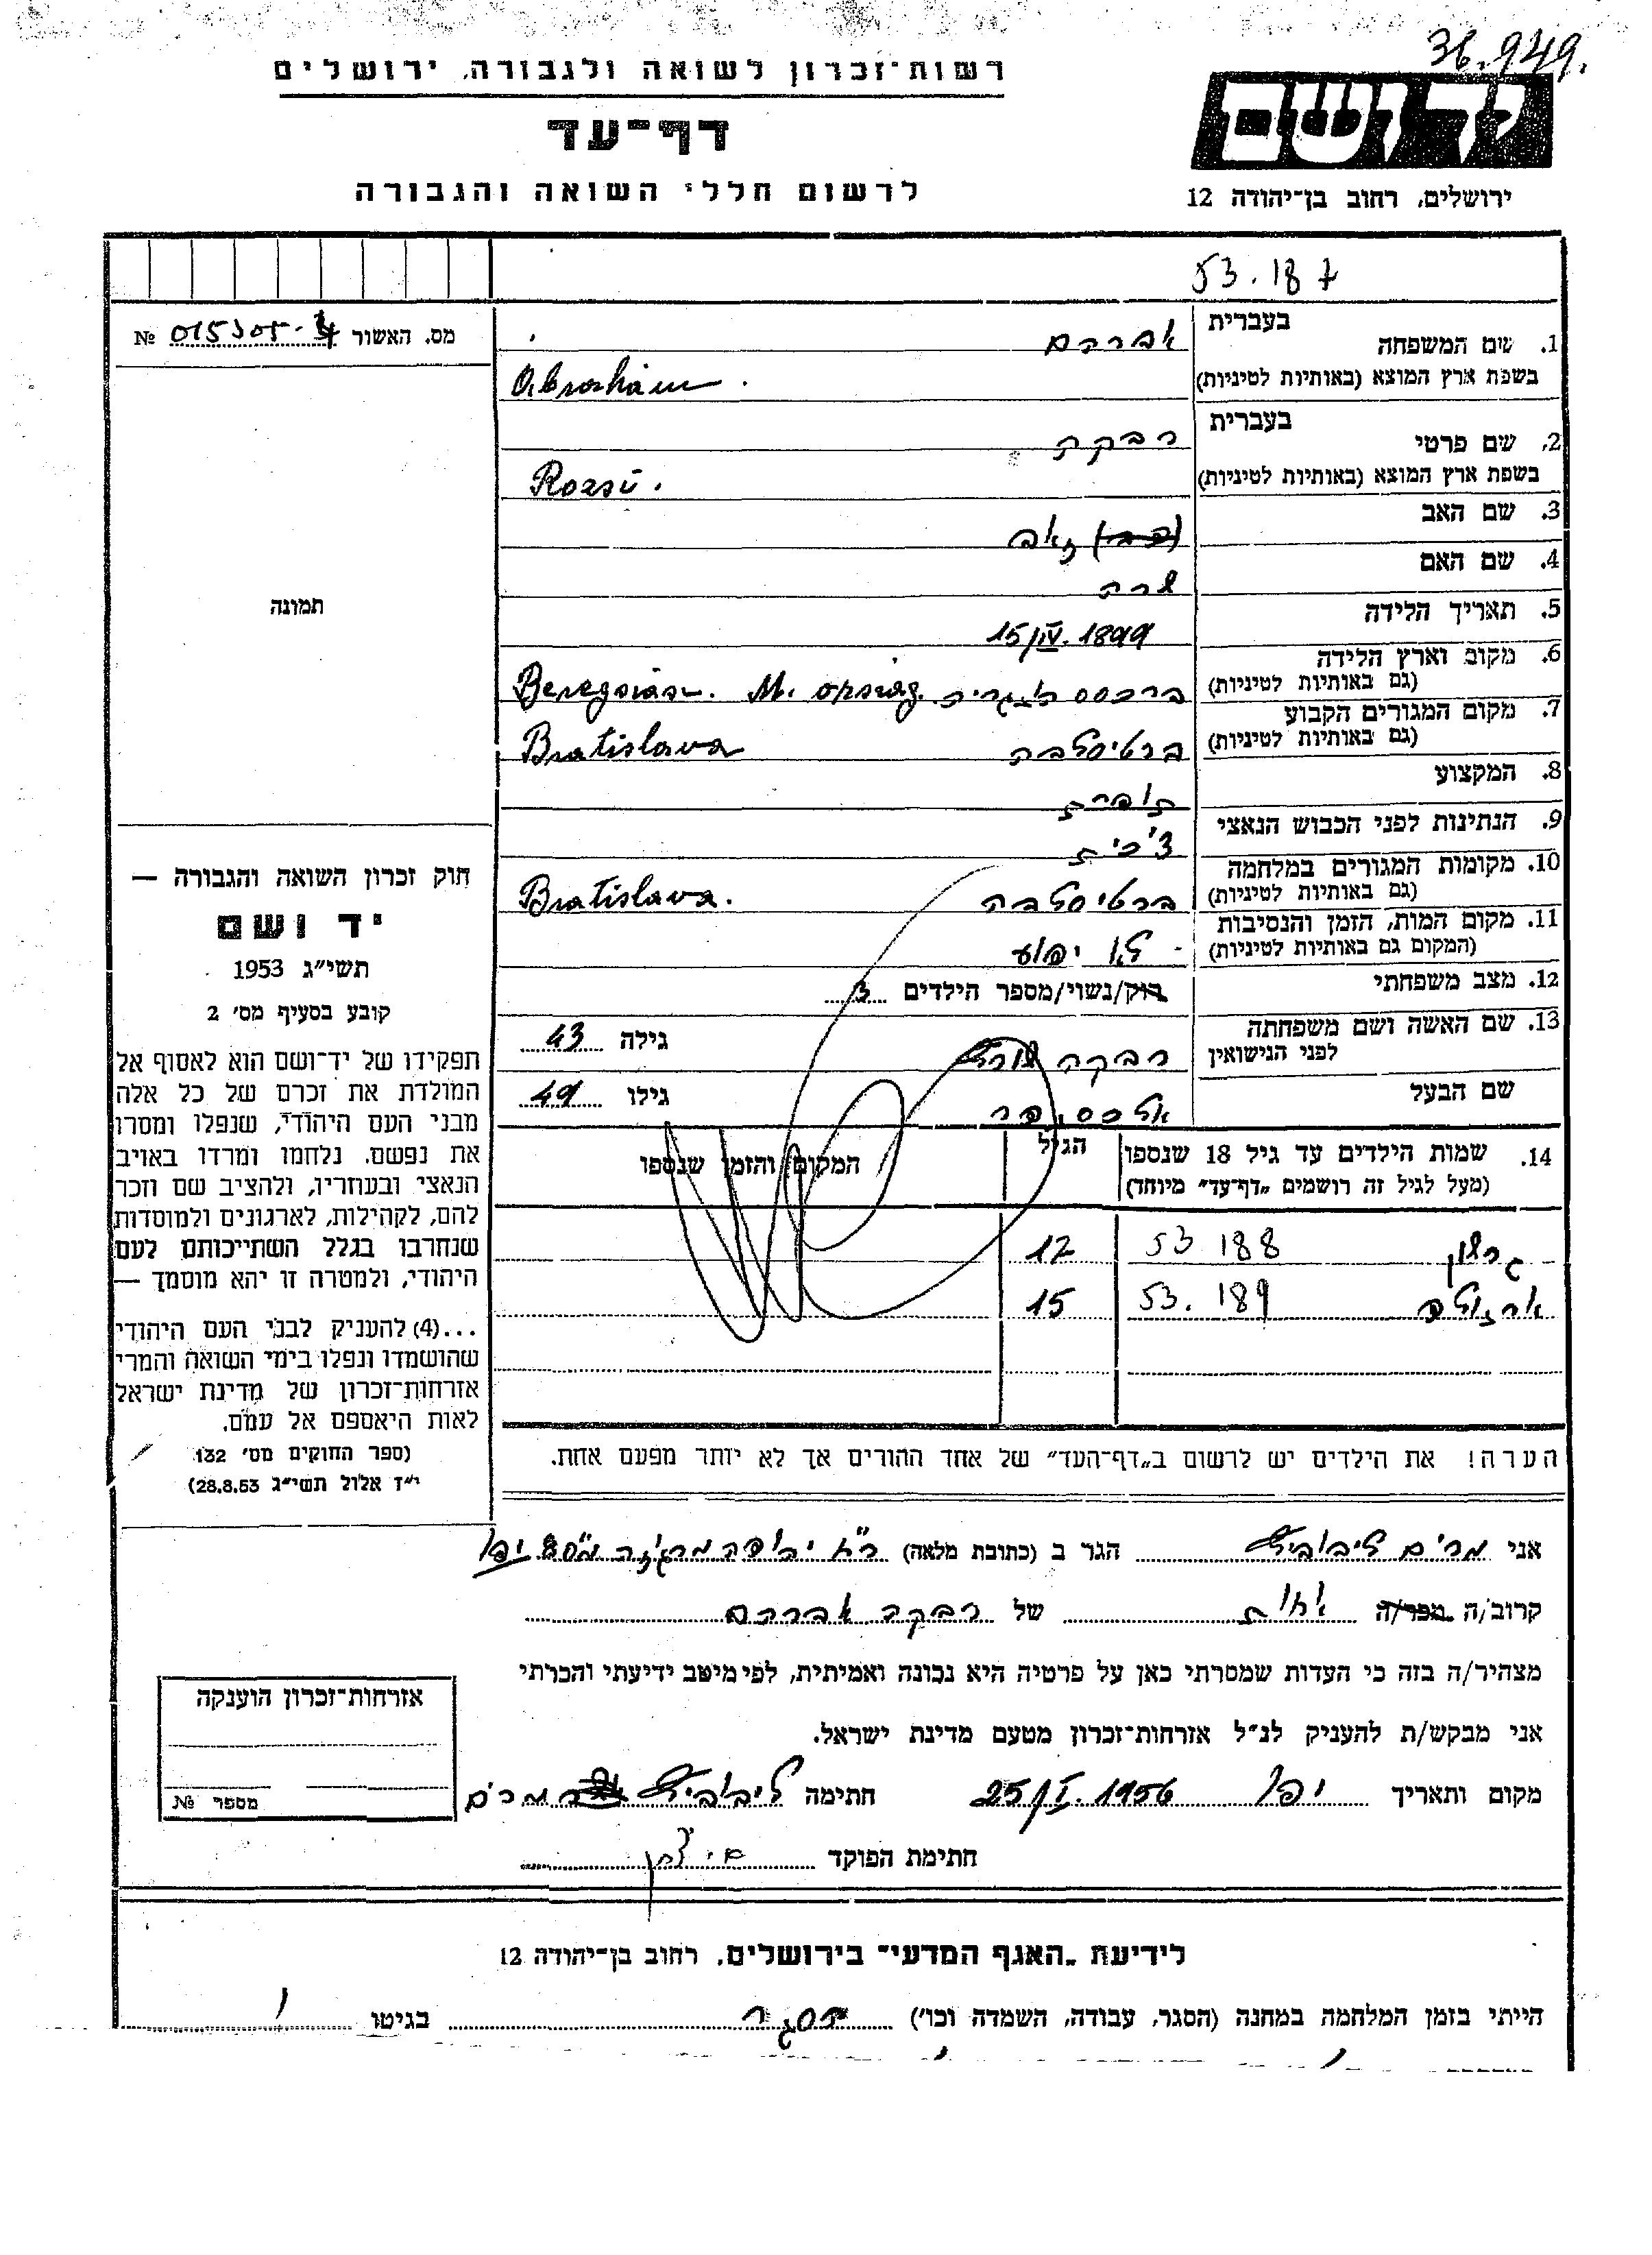 36.949.
רשות־זכרון לשואה ולגבורה, ירושלים
דף־עד
לרשום חללי השואה והגבורה
יד ושם
ירושלים, רחוב בן־יהודה 12
53.187
מס. האשור №
1. שם המשפחה בעברית אברהם
בשפת ארץ המוצא (באותיות לטיניות) Abrahám.
2. שם פרטי בעברית רבקה
בשפת ארץ המוצא (באותיות לטיניות) Rozsi.
3. שם האב זאב
4. שם האם שרה
5. תאריך הלידה 15/IV.1899
6. מקום וארץ הלידה
(גם באותיות לטיניות) ברגסס הונגריה Beregszász. M. ország.
7. מקום המגורים הקבוע
(גם באותיות לטיניות) ברטיסלבה Bratislava
8. המקצוע תופרת
9. הנתינות לפני הכבוש הנאצי צ'כית
10. מקומות המגורים במלחמה
(גם באותיות לטיניות) ברטיסלבה Bratislava.
11. מקום המות, הזמן והנסיבות
(המקום גם באותיות לטיניות) לא ידוע
12. מצב משפחתי רוק/נשוי/מספר הילדים 3
13. שם האשה ושם משפחתה
לפני הנישואין רבקה גילה 43
שם הבעל אלכסנדר גילו 49
14. שמות הילדים עד גיל 18 שנספו הגיל המקום והזמן שנספו
(מעל לגיל זה רושמים „דף־עד" מיוחד)
גרשון 53 188 12
53.189 15
הערה! את הילדים יש לרשום ב„דף־העד" של אחד ההורים אך לא יותר מפעם אחת.
תמונה
חוק זכרון השואה והגבורה —
יד ושם
תשי״ג 1953
קובע בסעיף מס׳ 2
תפקידו של יד־ושם הוא לאסוף אל
המולדת את זכרם של כל אלה
מבני העם היהודי, שנפלו ומסרו
את נפשם, נלחמו ומרדו באויב
הנאצי ובעוזריו, ולהציב שם וזכר
להם, לקהילות, לארגונים ולמוסדות
שנחרבו בגלל השתייכותם לעם
היהודי, ולמטרה זו יהא מוסמך —
...(4) להעניק לבני העם היהודי
שהושמדו ונפלו בימי השואה והמרי
אזרחות־זכרון של מדינת ישראל
לאות היאספם אל עמם.
(ספר החוקים מס׳ 132
י״ז אלול תשי״ג 28.8.53)
אני מרים ליבוביץ הגר ב (כתובת מלאה) רח' יהודה 80 יפו
קרוב/ה מכר/ה אחות של רבקה אברהם
מצהיר/ה בזה כי העדות שמסרתי כאן על פרטיה היא נכונה ואמיתית, לפי מיטב ידיעתי והכרתי
אני מבקש/ת להעניק לנ״ל אזרחות־זכרון מטעם מדינת ישראל.
מקום ותאריך יפו 25/I.1956 חתימה ליבוביץ מרים
חתימת הפוקד
אזרחות־זכרון הוענקה
מספר №
לידיעת „האגף המדעי" בירושלים, רחוב בן־יהודה 12
הייתי בזמן המלחמה במחנה (הסגר, עבודה, השמדה וכו׳) הסגר בגיטו